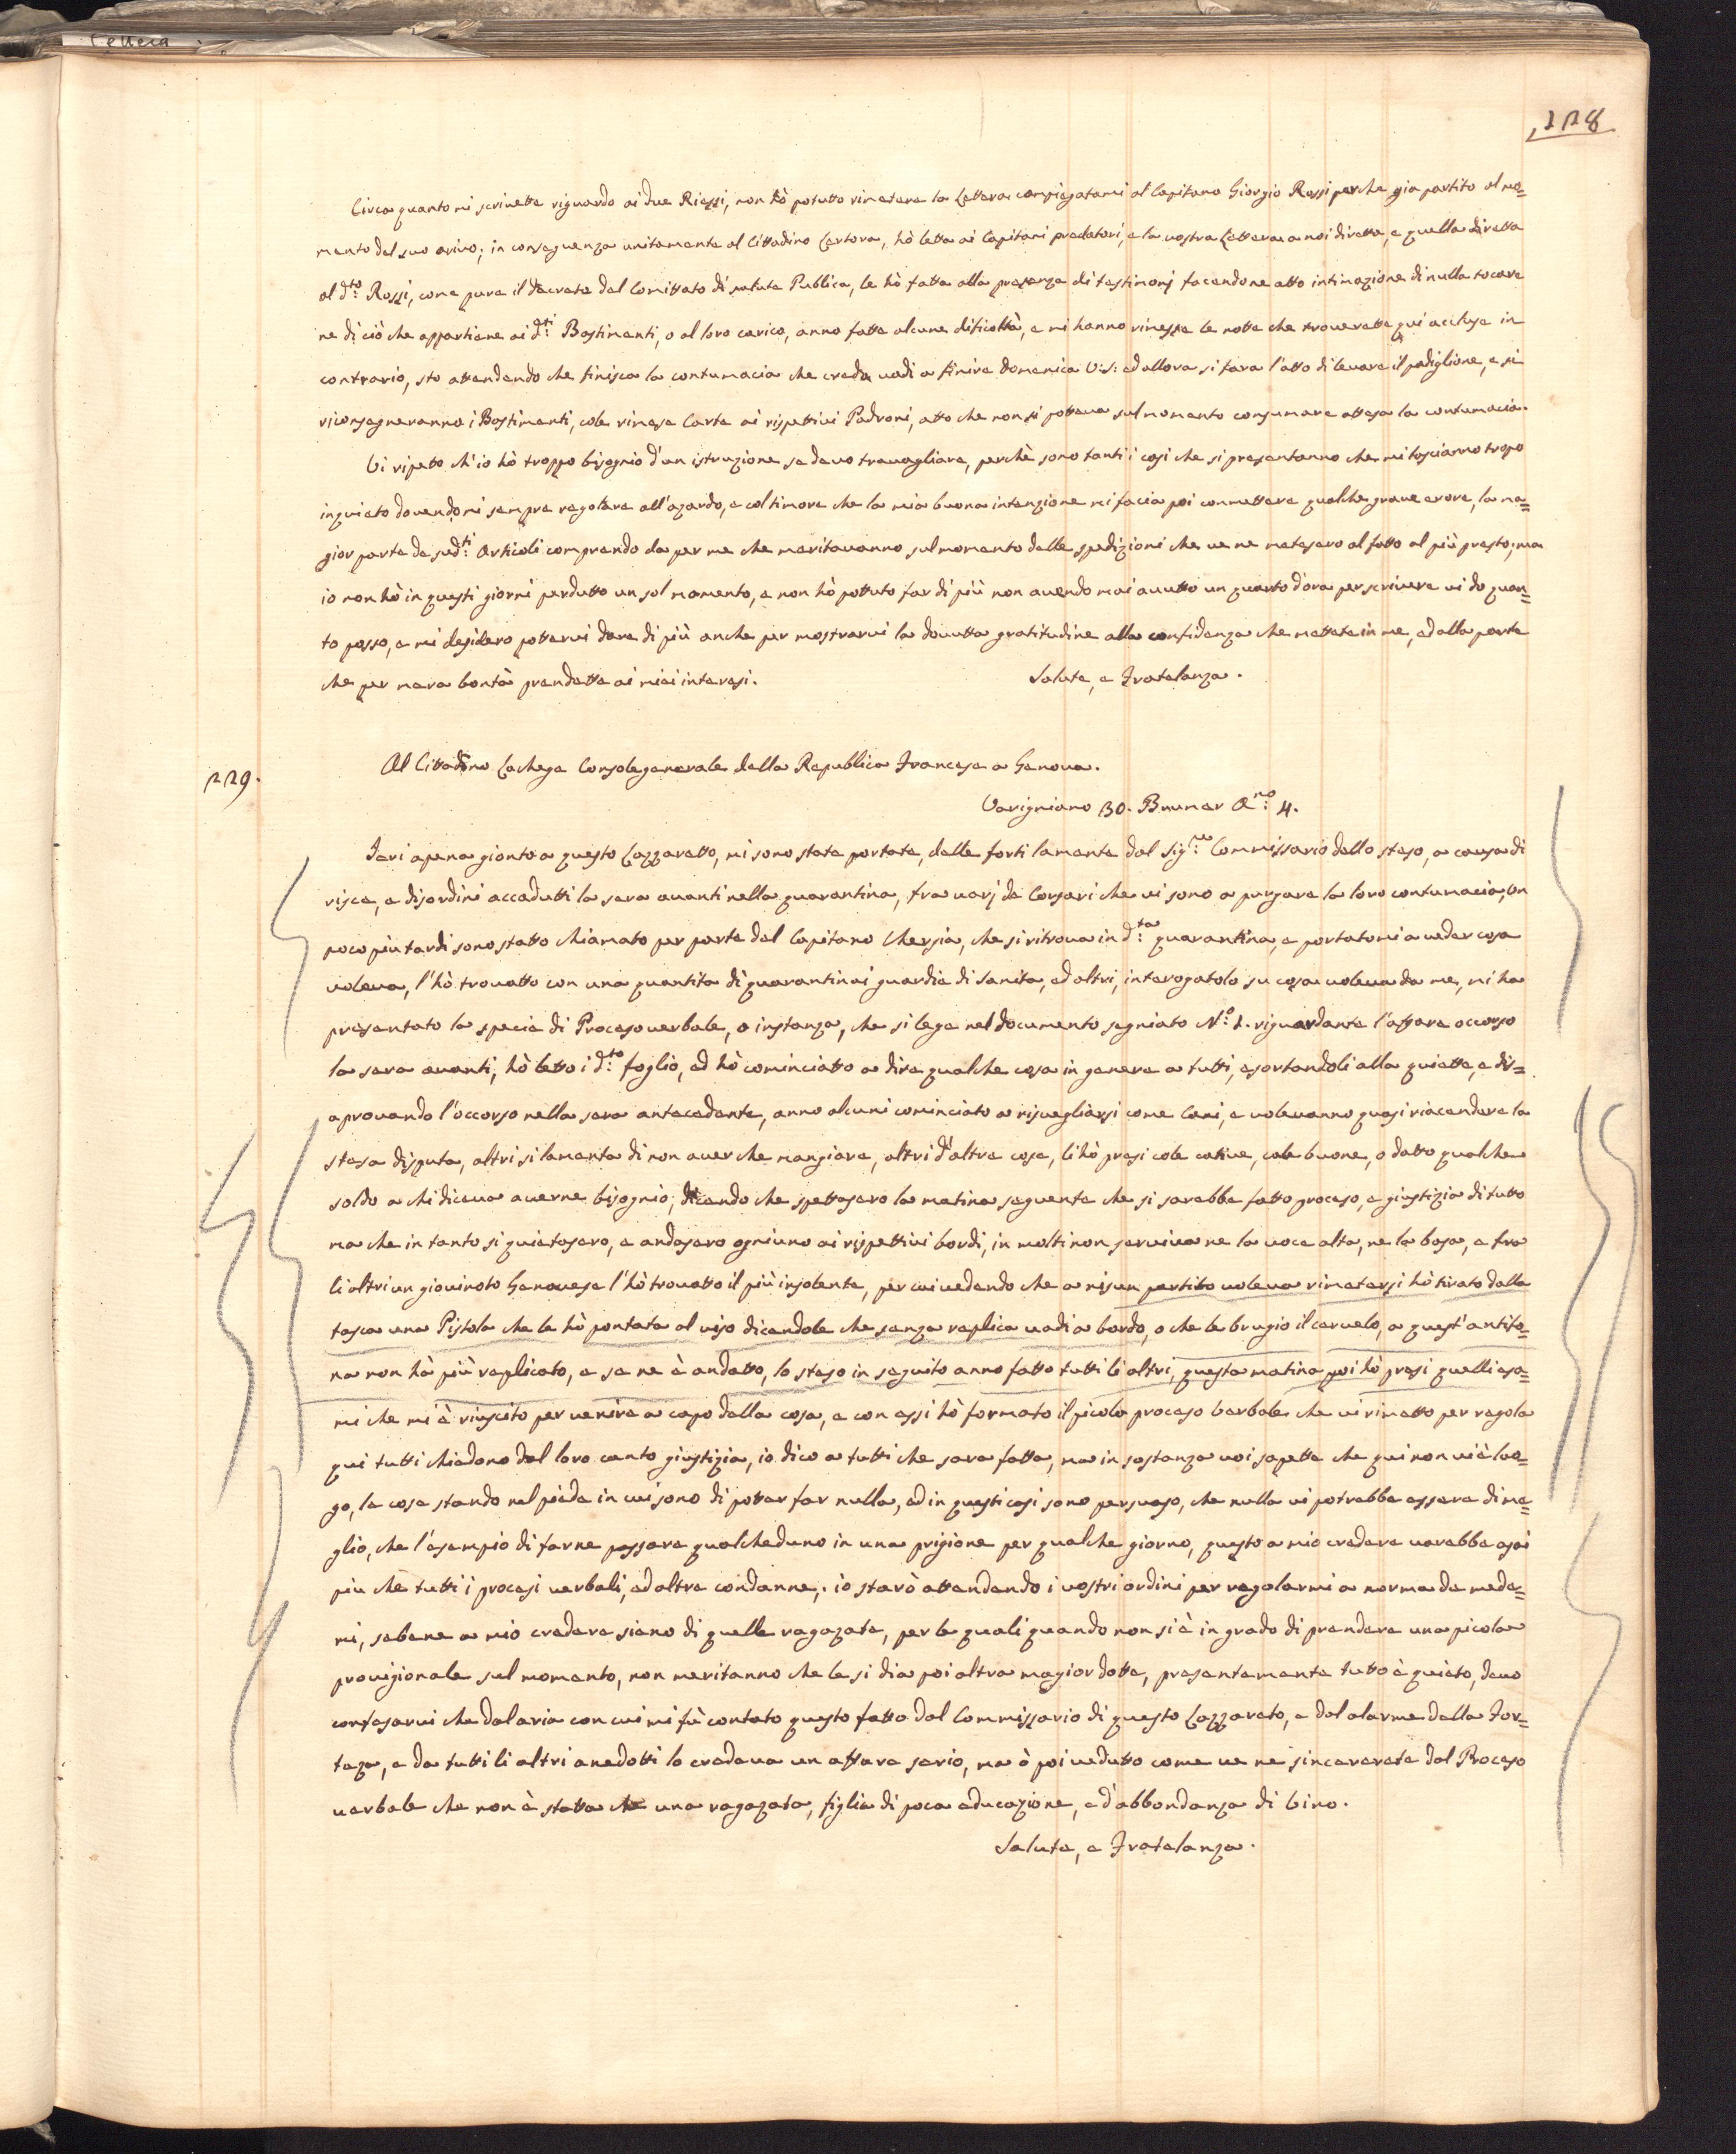 128
Circa quanto mi scrivette riguardo ai due Riessi, non hò potutto rimetere la Lettera compiegatami al Capitano Giorgio Rossi perche gia partito al mo=
mento del suo arivo; in conseguenza unitamente al Cittadino Certora, hò letta ai Capitani predatori, e la vostra Lettera a noi diretta, e quella diretta
al d:to Rossi, come pure il decreto del Comittato di salute Publica, le hò fatta alla presenza di testimonj facendone atto intimazione di nulla tocare
ne di ciò che appartiene ai d:ti Bastimenti, o al loro carico, anno fatte alcune dificoltà, e mi hanno rimesse le notte che troverette qui accluse in
contrario, sto attendendo che finisca la contumacia che credo vadi a finire Domenica V:S: ed allora si fara l'atto di levare il padiglione, e si
riconsegneranno i Bastimenti, cole rimese Carte ai rispettivi Padroni, atto che non si potteva sul momento consumare attesa la contumacia.
Vi ripetto ch'io hò troppo bisognio d'un istruzione se devo travagliare, perchè sono tanti i casi che si presentanno che mi lascianno tropo
inquieto dovendomi sempre regolare all'azardo, e col timore che la mia buona intenzione mi facia poi commettere qualche grave erore, la ma=
gior parte de sud:ti Articoli comprendo da per me che meritavanno sul momento delle spedizioni che ve ne metesero al fatto al più presto; ma
io non hò in questi giorni perdutto un sol momento, e non hò pottuto far di più non avendo mai avutto un quarto d'ora per scrivere vi do quan=
to posso, e mi desidero pottervi dare di più anche per mostrarvi la dovutta gratitudine alla confidenza che mettete in me, ed alla parte
che per mera bontà prendette ai miei interesi. Salute, e Fratelanza.
229.
Al Cittadino Lachege Console generale della Republica Francese a Genova.
Varigniano 30. Brumer A:no 4.
Ieri apena gionto a questo Lazzaretto, mi sono state portate, delle forti lamente dal Sig:re Commissario dello steso, a causa di
risce, e disordini accadutti la sera avanti nella quarantina, fra varj de Corsari che vi sono a purgare la loro contumacia, un
poco piu tardi sono statto chiamato per parte del Capitano Chersia, che si ritrova in d:ta quarantina, e portatomi a veder cosa
voleva, l'hò trovatto con una quantita di quarantinai guardie di Sanita, ed altri, interogatolo su cosa voleva da me, mi ha
presentato la specie di Proceso verbale, o instanza, che si lege nel documento segniato N:o 1. riguardante l'affare occorso
la sera avanti, hò letto i d:to foglio, ed hò cominciatto a dire qualche cosa in genere a tutti, esortandoli alla quiette, e dis=
aprovando l'occorso nella sera antecedente, anno alcuni cominciato a risvegliarsi come Cani, e volevanno quasi riacendere la
stesa disputa, altri si lamenta di non aver che mangiare, altri d'altre cose, li hò presi cole cative, cole buone, o datto qualche
soldo a chi diceva averne bisognio, dicendo che spettasero la matina seguente che si sarebbe fatto proceso, e giustizia di tutto
ma che in tanto si quietasero, e andasero ogniuno ai rispettivi bordi, in molti non serviva ne la voce alta, ne la basa, e fra
li altri un giovinoto Genovese l'hò trovatto il più insolente, per cui vedendo che a nisun partito voleva rimetersi hò tirato dalla
tasca una Pistola che le hò pontata al viso dicendole che senza replica vadi a bordo, o che le brugio il cervelo, a quest'antifo=
na non hà più replicato, e se ne è andatto, lo steso in seguito anno fatto tutti li altri, questa matina poi hò presi quelli esa=
mi che mi è riuscito per venire a capo della cosa, e con essi hò formato il picolo proceso Verbale che vi rimetto per regola
qui tutti chiedono dal loro canto giustizia, io dico a tutti che sara fatta, ma in sostanza voi sapette che qui non vi è luo=
go, le cose stando nel piede in cui sono di potter far nulla, ed in questi casi sono persuaso, che nulla vi potrebbe essere di me=
glio, che l'esempio di farne passare qualcheduno in una prigione per qualche giorno, questo a mio credere varebbe asai
piu che tutti i procesi verbali, ed altre condanne; io starò attendendo i vostri ordini per regolarmi a norma de mede=
mi, sebene a mio credere siano di quelle ragazate, per le quali quando non si è in grado di prendere una picola
provigionale sul momento, non meritanno che le si dia poi altra magior dotte, presentemente tutto è quieto, devo
confesarvi che dal aria con cui mi fù contato questo fatto dal Commissario di questo Lazzareto, e dal alarme della For=
teza, e da tutti li altri anedotti lo credeva un affare serio, ma ò poi vedutto come ve ne sincererete dal Proceso
verbale che non è statta che una ragazata, figlia di poca educazione, e d'abbondanza di Vino.
Salute, e Fratelanza.